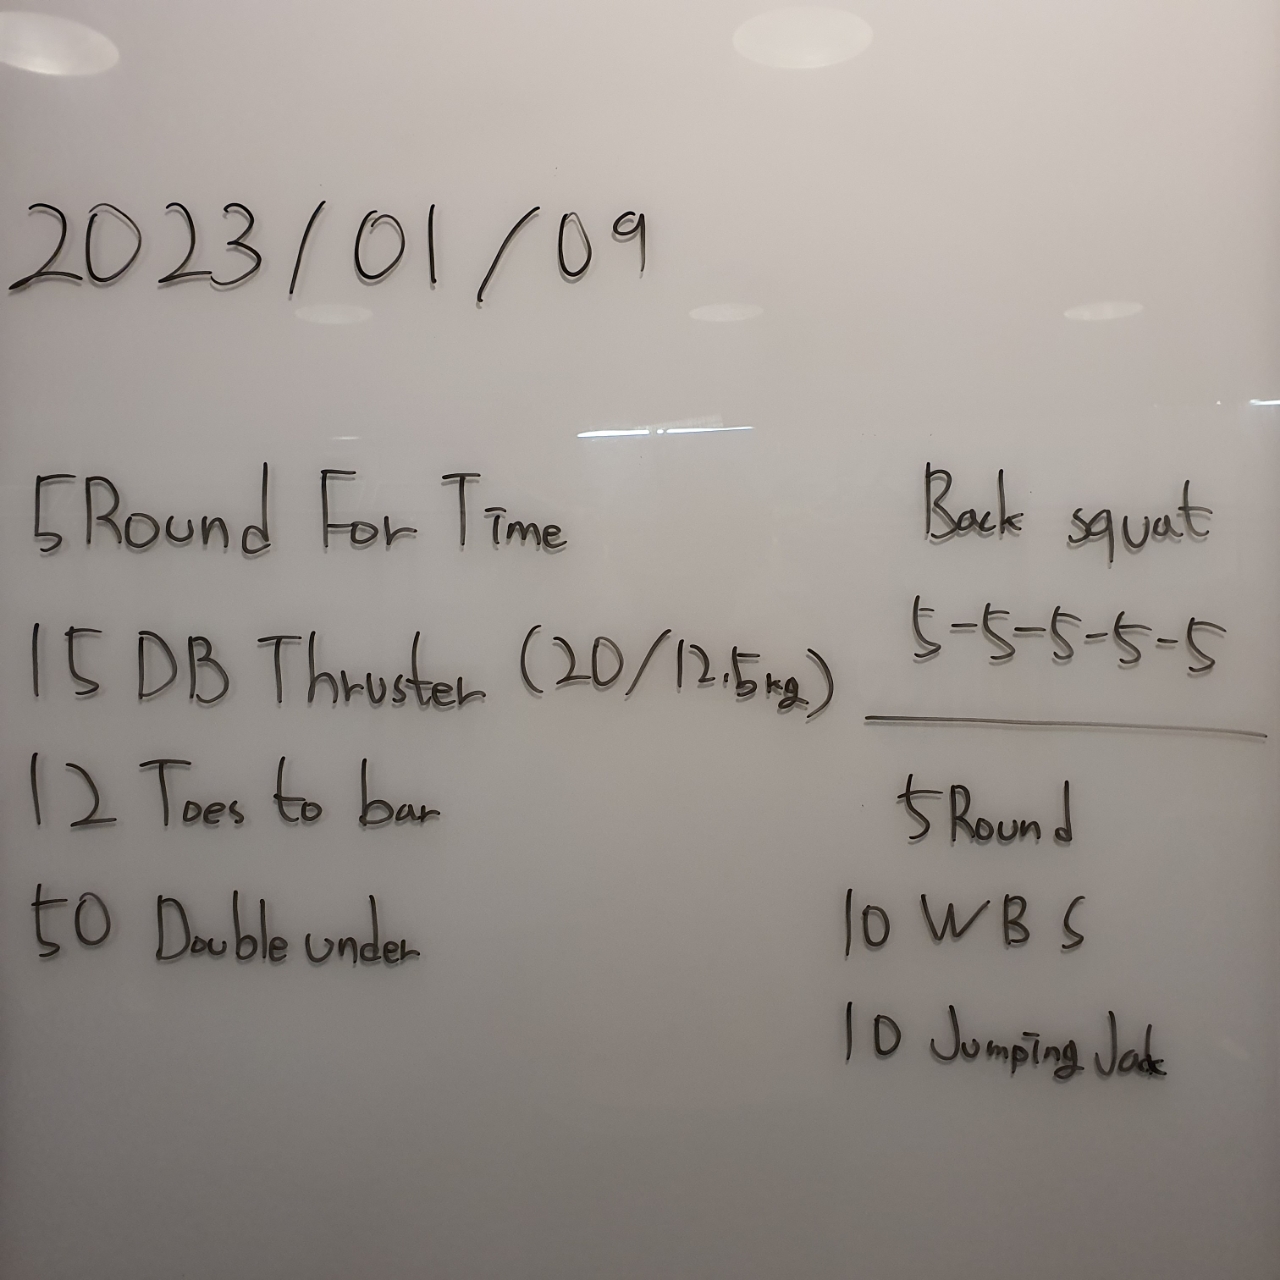 2023/01/09
5Round For Time
15 DB Thruster (20/12.5kg)
12 Toes to bar
50 Double under
Back squat
5-5-5-5-5
5Round
10 WBS
10 Jumping Jack